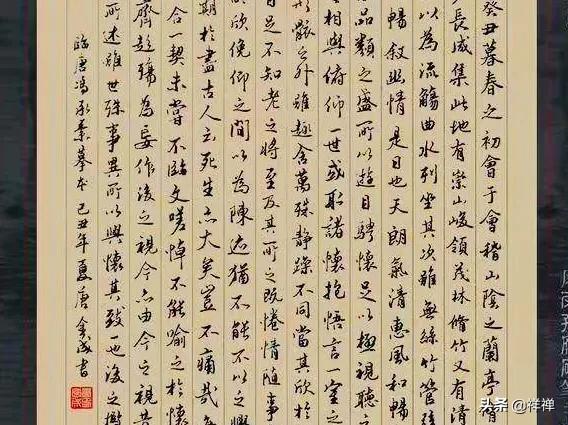 癸丑暮春之初會于會稽山陰之蘭亭脩
長咸集此地有崇山峻領茂林脩竹又有清
以為流觴曲水列坐其次雖無絲竹管弦
暢敘幽情是日也天朗氣清惠風和暢
品類之盛所以遊目騁懷足以極視聽之
相與俯仰一世或取諸懷抱悟言一室之
形骸之外雖趣舍萬殊靜躁不同當其欣於
足不知老之將至及其所之既惓情隨事
欣俛仰之間以為陳迹猶不能不以之興
期於盡古人云死生亦大矣豈不痛哉
合一契未嘗不臨文嗟悼不能喻之於懷
齊彭殤為妄作後之視今亦由今之視昔
所述雖世殊事異所以興懷其致一也後之攬
臨唐馮承素摹本 己丑年夏唐金成書
头条 @祥禅